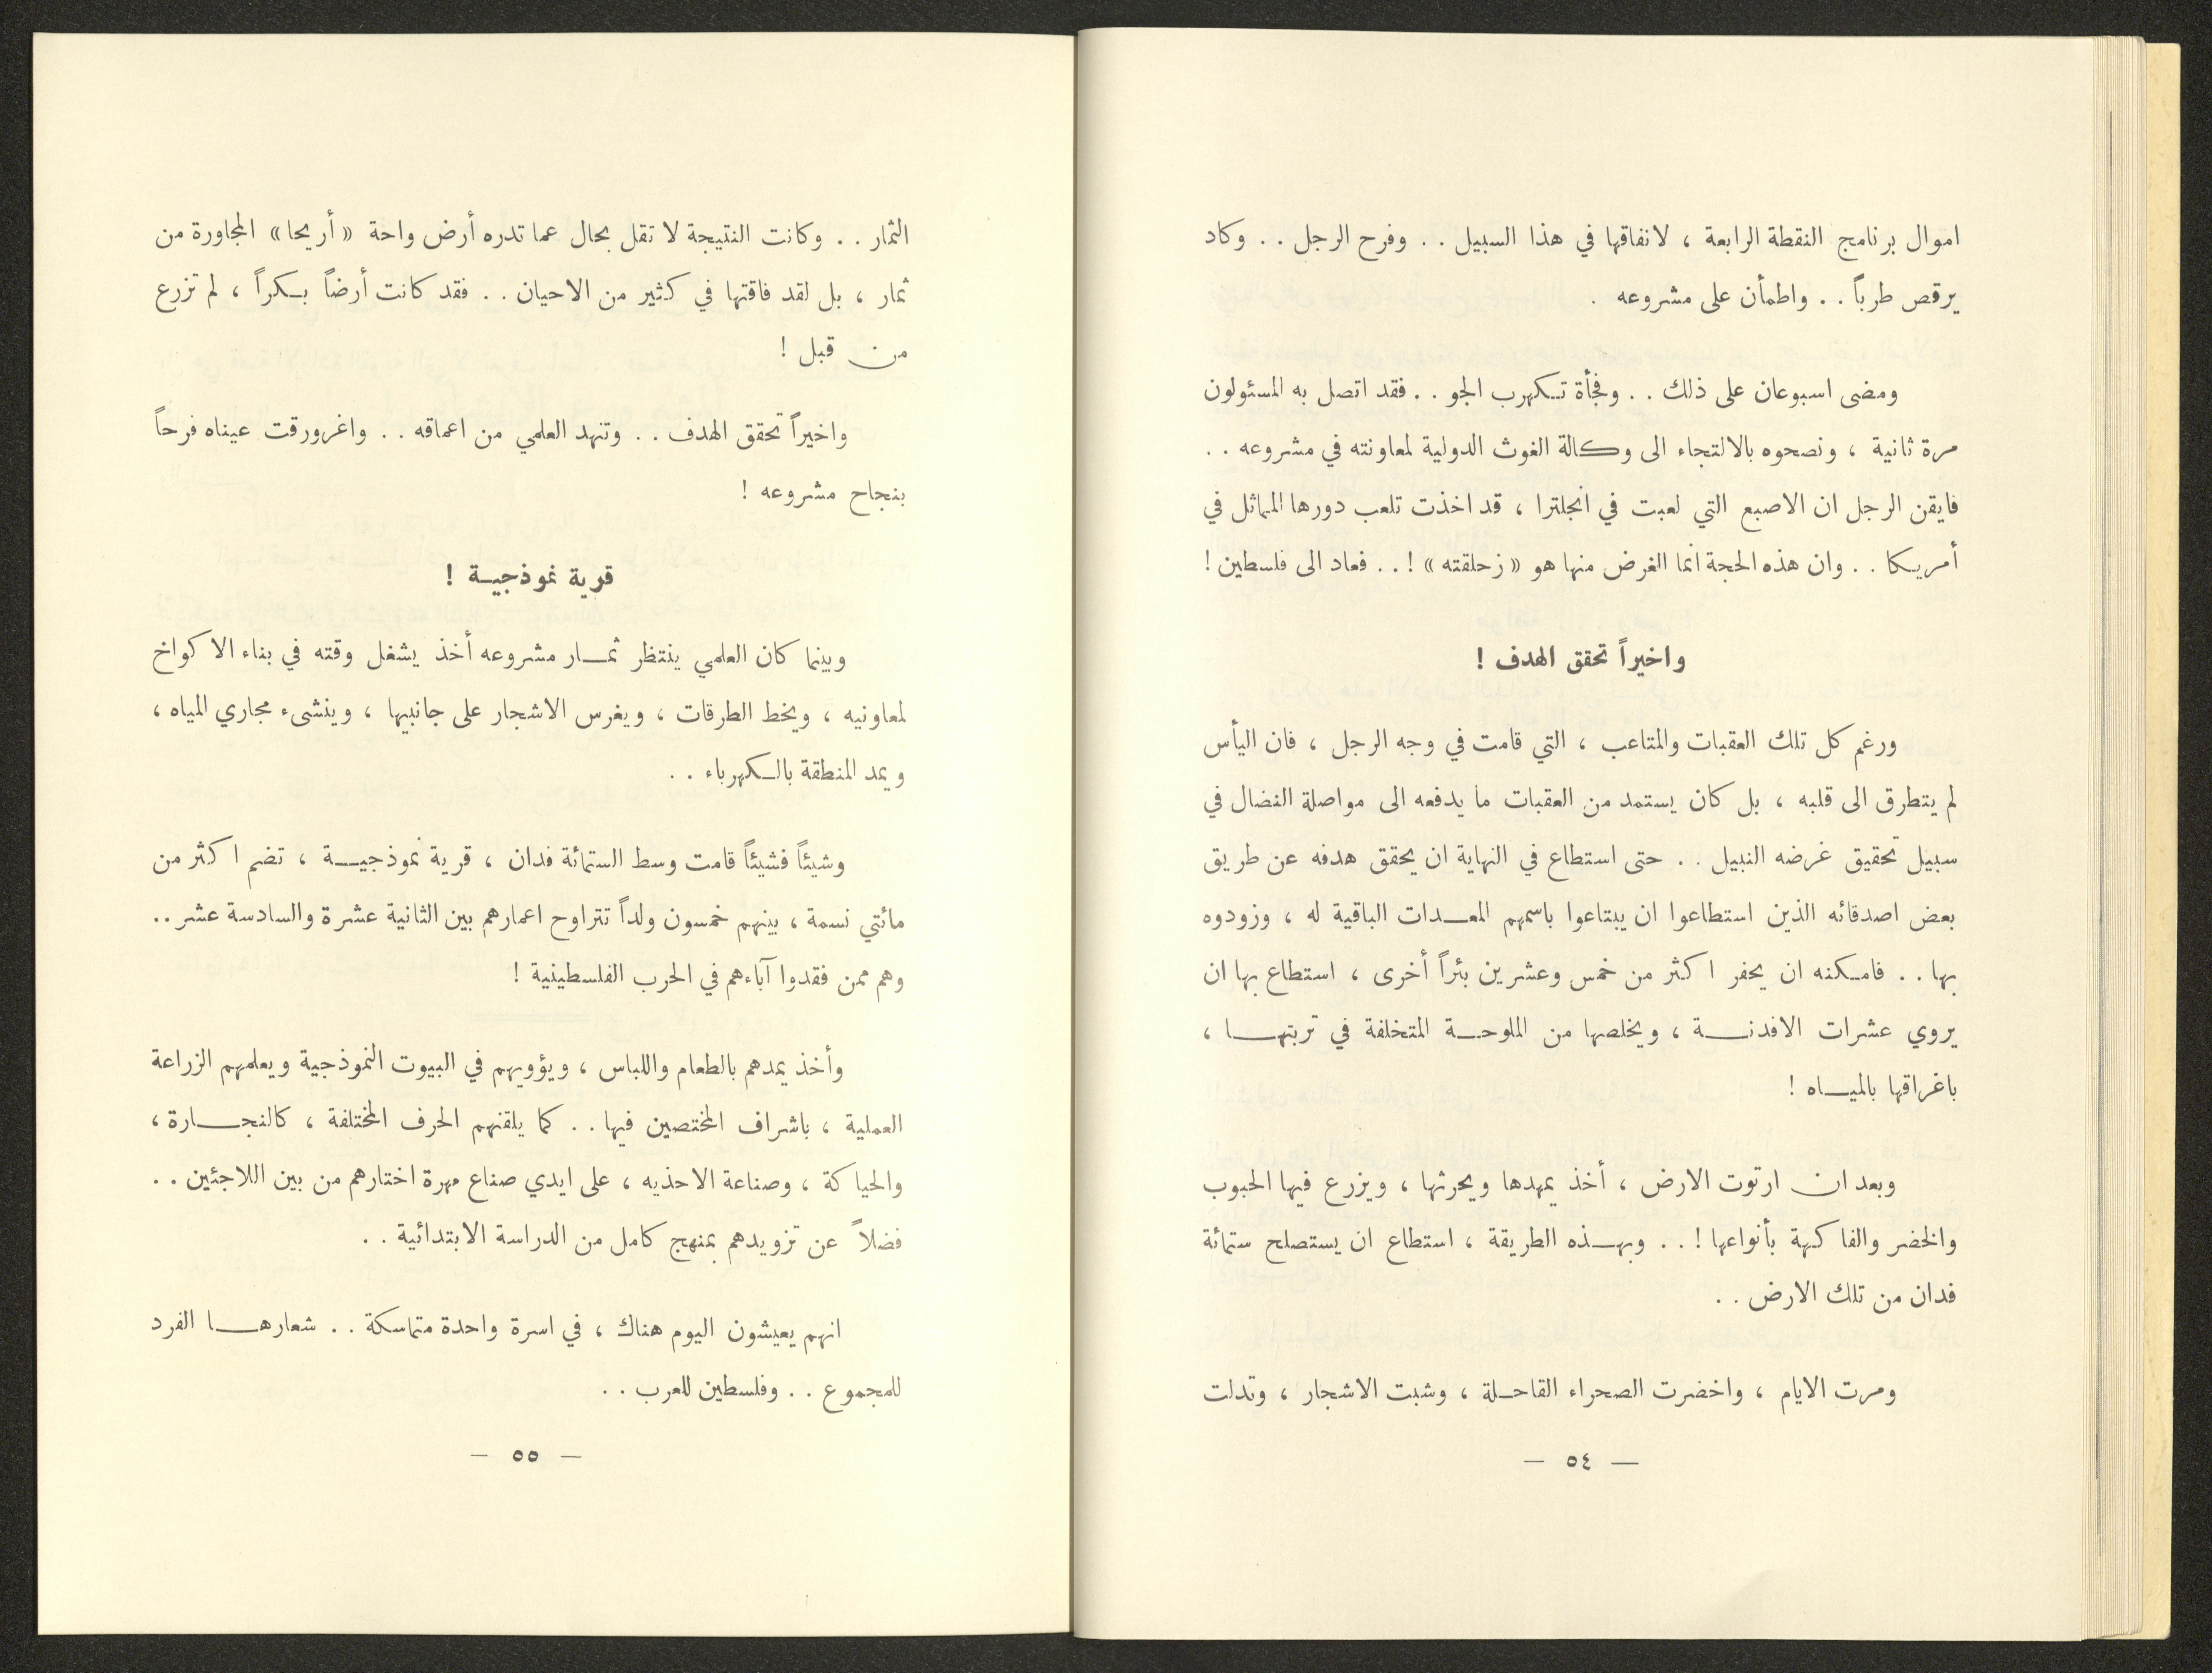 اموال برنامج النقطة الرابعة ، لانفاقها في هذا السبيل . . وفرح الرجل . . وكاد
يرقص طرباً . . واطمأن على مشروعه .
ومضى اسبوعان على ذلك . . وفجأة تكهرب الجو . . فقد اتصل به المسئولون
مرة ثانية ، ونصحوه بالالتجاء الى وكالة الغوث الدولية لمعاونته في مشروعه . .
فايقن الرجل ان الاصبع التي لعبت في انجلترا ، قد اخذت تلعب دورها المماثل في
أمريكا . . وان هذه الحجة انما الغرض منها هو « زحلقته » ! . . فعاد الى فلسطين !
واخيراً تحقق الهدف !
ورغم كل تلك العقبات والمتاعب ، التي قامت في وجه الرجل ، فان اليأس
لم يتطرق الى قلبه ، بل كان يستمد من العقبات ما يدفعه الى مواصلة النضال في
سبيل تحقيق غرضه النبيل . . حتى استطاع في النهاية ان يحقق هدفه عن طريق
بعض اصدقائه الذين استطاعوا ان يبتاعوا باسمهم المعدات الباقية له ، وزودوه
بها . . فامكنه ان يحفر اكثر من خمس وعشرين بئراً أخرى ، استطاع بها ان
يروي عشرات الافدنة ، ويخلصها من الملوحة المتخلفة في تربتها ،
باغراقها بالمياه !
وبعد ان ارتوت الارض ، أخذ يمهدها ويحرثها ، ويزرع فيها الحبوب
والخضر والفاكهة بأنواعها ! . . وبهذه الطريقة ، استطاع ان يستصلح ستمائة
فدان من تلك الارض . .
ومرت الايام ، واخضرت الصحراء القاحلة ، وشبت الاشجار ، وتدلت
— ٥٤ —
الثمار . . وكانت النتيجة لا تقل بحال عما تدره أرض واحة « أريحا » المجاورة من
ثمار ، بل لقد فاقتها في كثير من الاحيان . . فقد كانت أرضاً بكراً ، لم تزرع
من قبل !
واخيراً تحقق الهدف . . وتنهد العلمي من اعماقه . . واغرورقت عيناه فرحاً
بنجاح مشروعه !
قرية نموذجية !
وبينما كان العلمي ينتظر ثمار مشروعه أخذ يشغل وقته في بناء الاكواخ
لمعاونيه ، ويخط الطرقات ، ويغرس الاشجار على جانبيها ، وينشىء مجاري المياه ،
ويمد المنطقة بالكهرباء . .
وشيئاً فشيئاً قامت وسط الستمائة فدان ، قرية نموذجية ، تضم اكثر من
مائتي نسمة ، بينهم خمسون ولداً تتراوح اعمارهم بين الثانية عشرة والسادسة عشر . .
وهم ممن فقدوا آباءهم في الحرب الفلسطينية !
وأخذ يمدهم بالطعام واللباس ، ويؤويهم في البيوت النموذجية ويعلمهم الزراعة
العملية ، باشراف المختصين فيها . . كما يلقنهم الحرف المختلفة ، كالنجارة ،
والحياكة ، وصناعة الاحذيه ، على ايدي صناع مهرة اختارهم من بين اللاجئين . .
فضلاً عن تزويدهم بمنهج كامل من الدراسة الابتدائية . .
انهم يعيشون اليوم هناك ، في اسرة واحدة متماسكة . . شعارها الفرد
للمجموع . . وفلسطين للعرب . .
— ٥٥ —